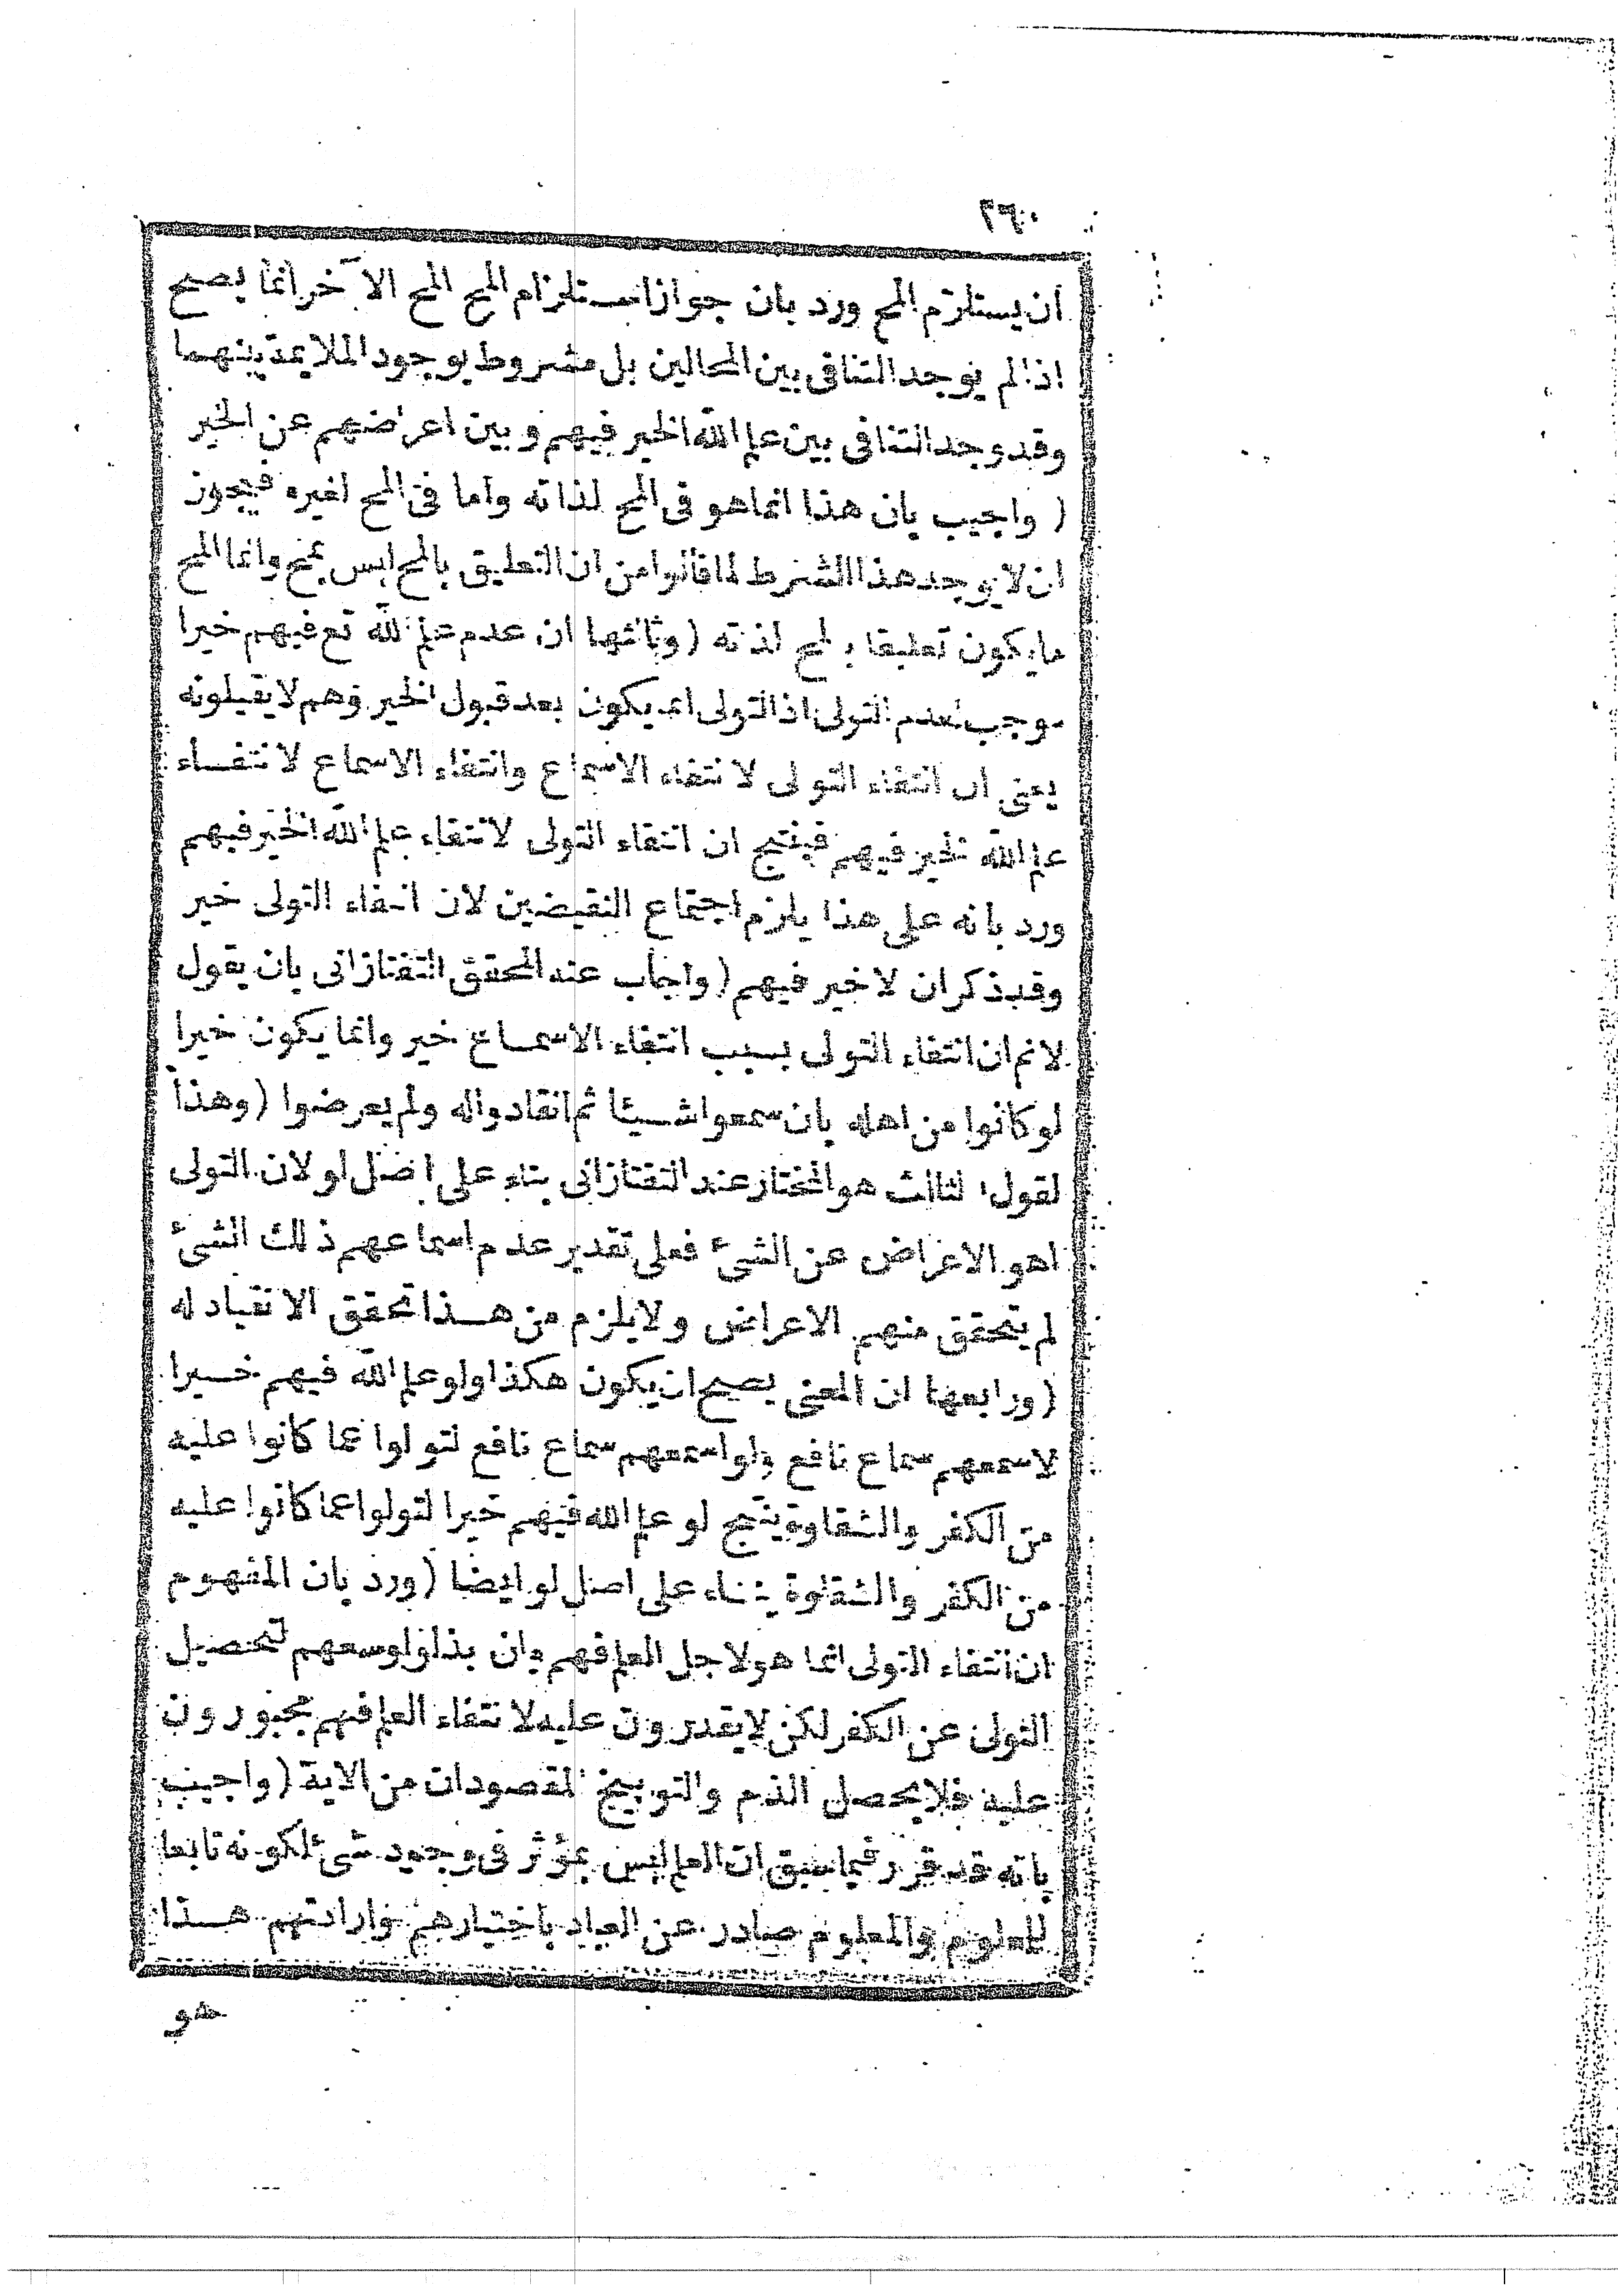 ٢٦٠
ان يستلزم المح ورد بان جواز استلزام المح المح الآخر انما يصح
اذا لم يوجد التنافى بين المحالين بل مشروط بوجود الملايمة بينهما
وقد وجد التنافى بين علم الله الخير فيهم وبين اعراضهم عن الخير
( واجيب بان هذا انما هو فى المح لذاته واما فى المح لغيره فيجوز
ان لا يوجد هذا الشرط لما قالوا من ان التعليق بالمح ليس بمح وانما المح
ما يكون تعليقا بالمح لذته ( وثالثها ان عدم علم الله تع فيهم خيرا
موجب لعدم التولى اذ التولى انما يكون بعد قبول الخير وهم لا يقبلونه
يعنى ان انتفاء التولى لانتفاء الاسماع وانتفاء الاسماع لانتفاء
علم الله الخير فيهم فينتج ان انتفاء التولى لانتفاء علم الله الخير فيهم
ورد بانه على هذا يلزم اجتماع النقيضين لان انتفاء التولى خير
وقد ذكر ان لا خير فيهم ( واجاب عنه المحقق التفتازانى بان يقول
لانم ان انتفاء التولى بسبب انتفاء الاسماع خير وانما يكون خيرا
لو كانوا من اهله بان سمعوا شيئا ثم انقادوا له ولم يعرضوا ( وهذا
لقول الثالث هو المختار عند التفتازانى بناء على اصل لو لان التولى
اهو الاعراض عن الشئ فعلى تقدير عدم اسماعهم ذلك الشئ
لم يتحقق منهم الاعراض ولا يلزم من هذا تحقق الانقياد له
( ورابعها ان المعنى يصح ان يكون هكذا ولو علم الله فيهم خيرا
لاسمعهم سماع نافع ولو اسمعهم سماع نافع لتولوا عما كانوا عليه
من الكفر والشقاوة ينتج لو علم الله فيهم خيرا لتولوا عما كانوا عليه
من الكفر والشقاوة بناء على اصل لو ايضا ( ورد بان المفهوم
ان انتفاء التولى انما هو لاجل العلم فهم وان بذلوا وسعهم لتحصيل
التولى عن الكفر لكن لا يقدرون عليه لانتفاء العلم فهم مجبورون
عليه فلا يحصل الذم والتوبيخ المقصودان من الاية ( واجيب
بانه قد قرر فيما سبق ان العلم ليس بمؤثر فى وجود شئ لكونه تابعا
للمعلوم والمعلوم صادر عن العباد باختيارهم وارادتهم هذا
هو